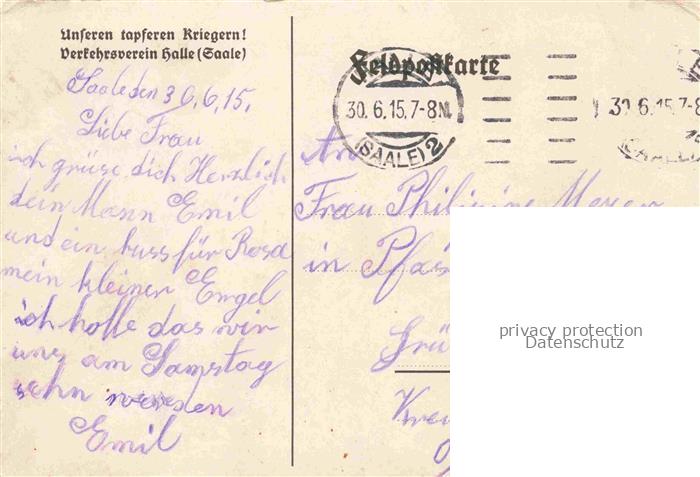 Unseren tapferen Kriegern!
Verkehrsverein Halle (Saale)
Feldpostkarte
30.6.15.7-8N.
(SAALE) 2
30 6.15.7-8
Saale den 30.6.15.
Liebe Frau
ich grüse dich Herzlich
dein Mann Emil
und ein kuss für Rosa
mein kleiner Engel
ich hoffe das wir
uns am Samstag
sehn werden
Emil
An
Frau Philipine Meyer
in Pfäs
Grü
privacy protection
Datenschutz